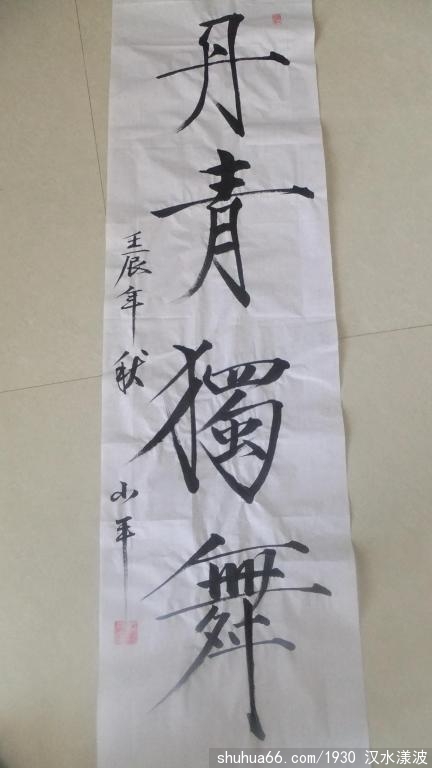 丹青獨舞
壬辰年秋
小平
shuhua66.com/1930 汉水漾波